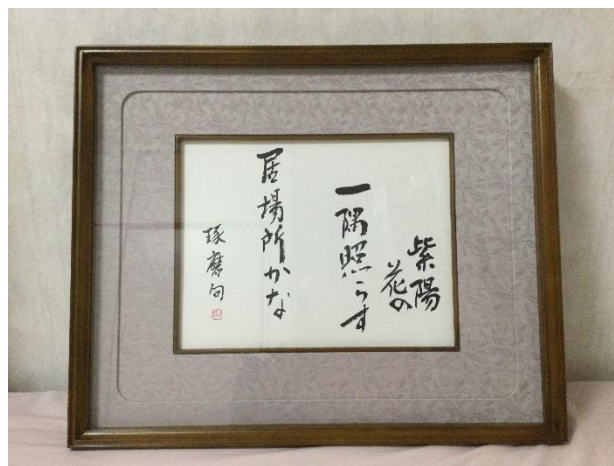 紫陽
花の
一隅照らす
居場所かな
琢磨句